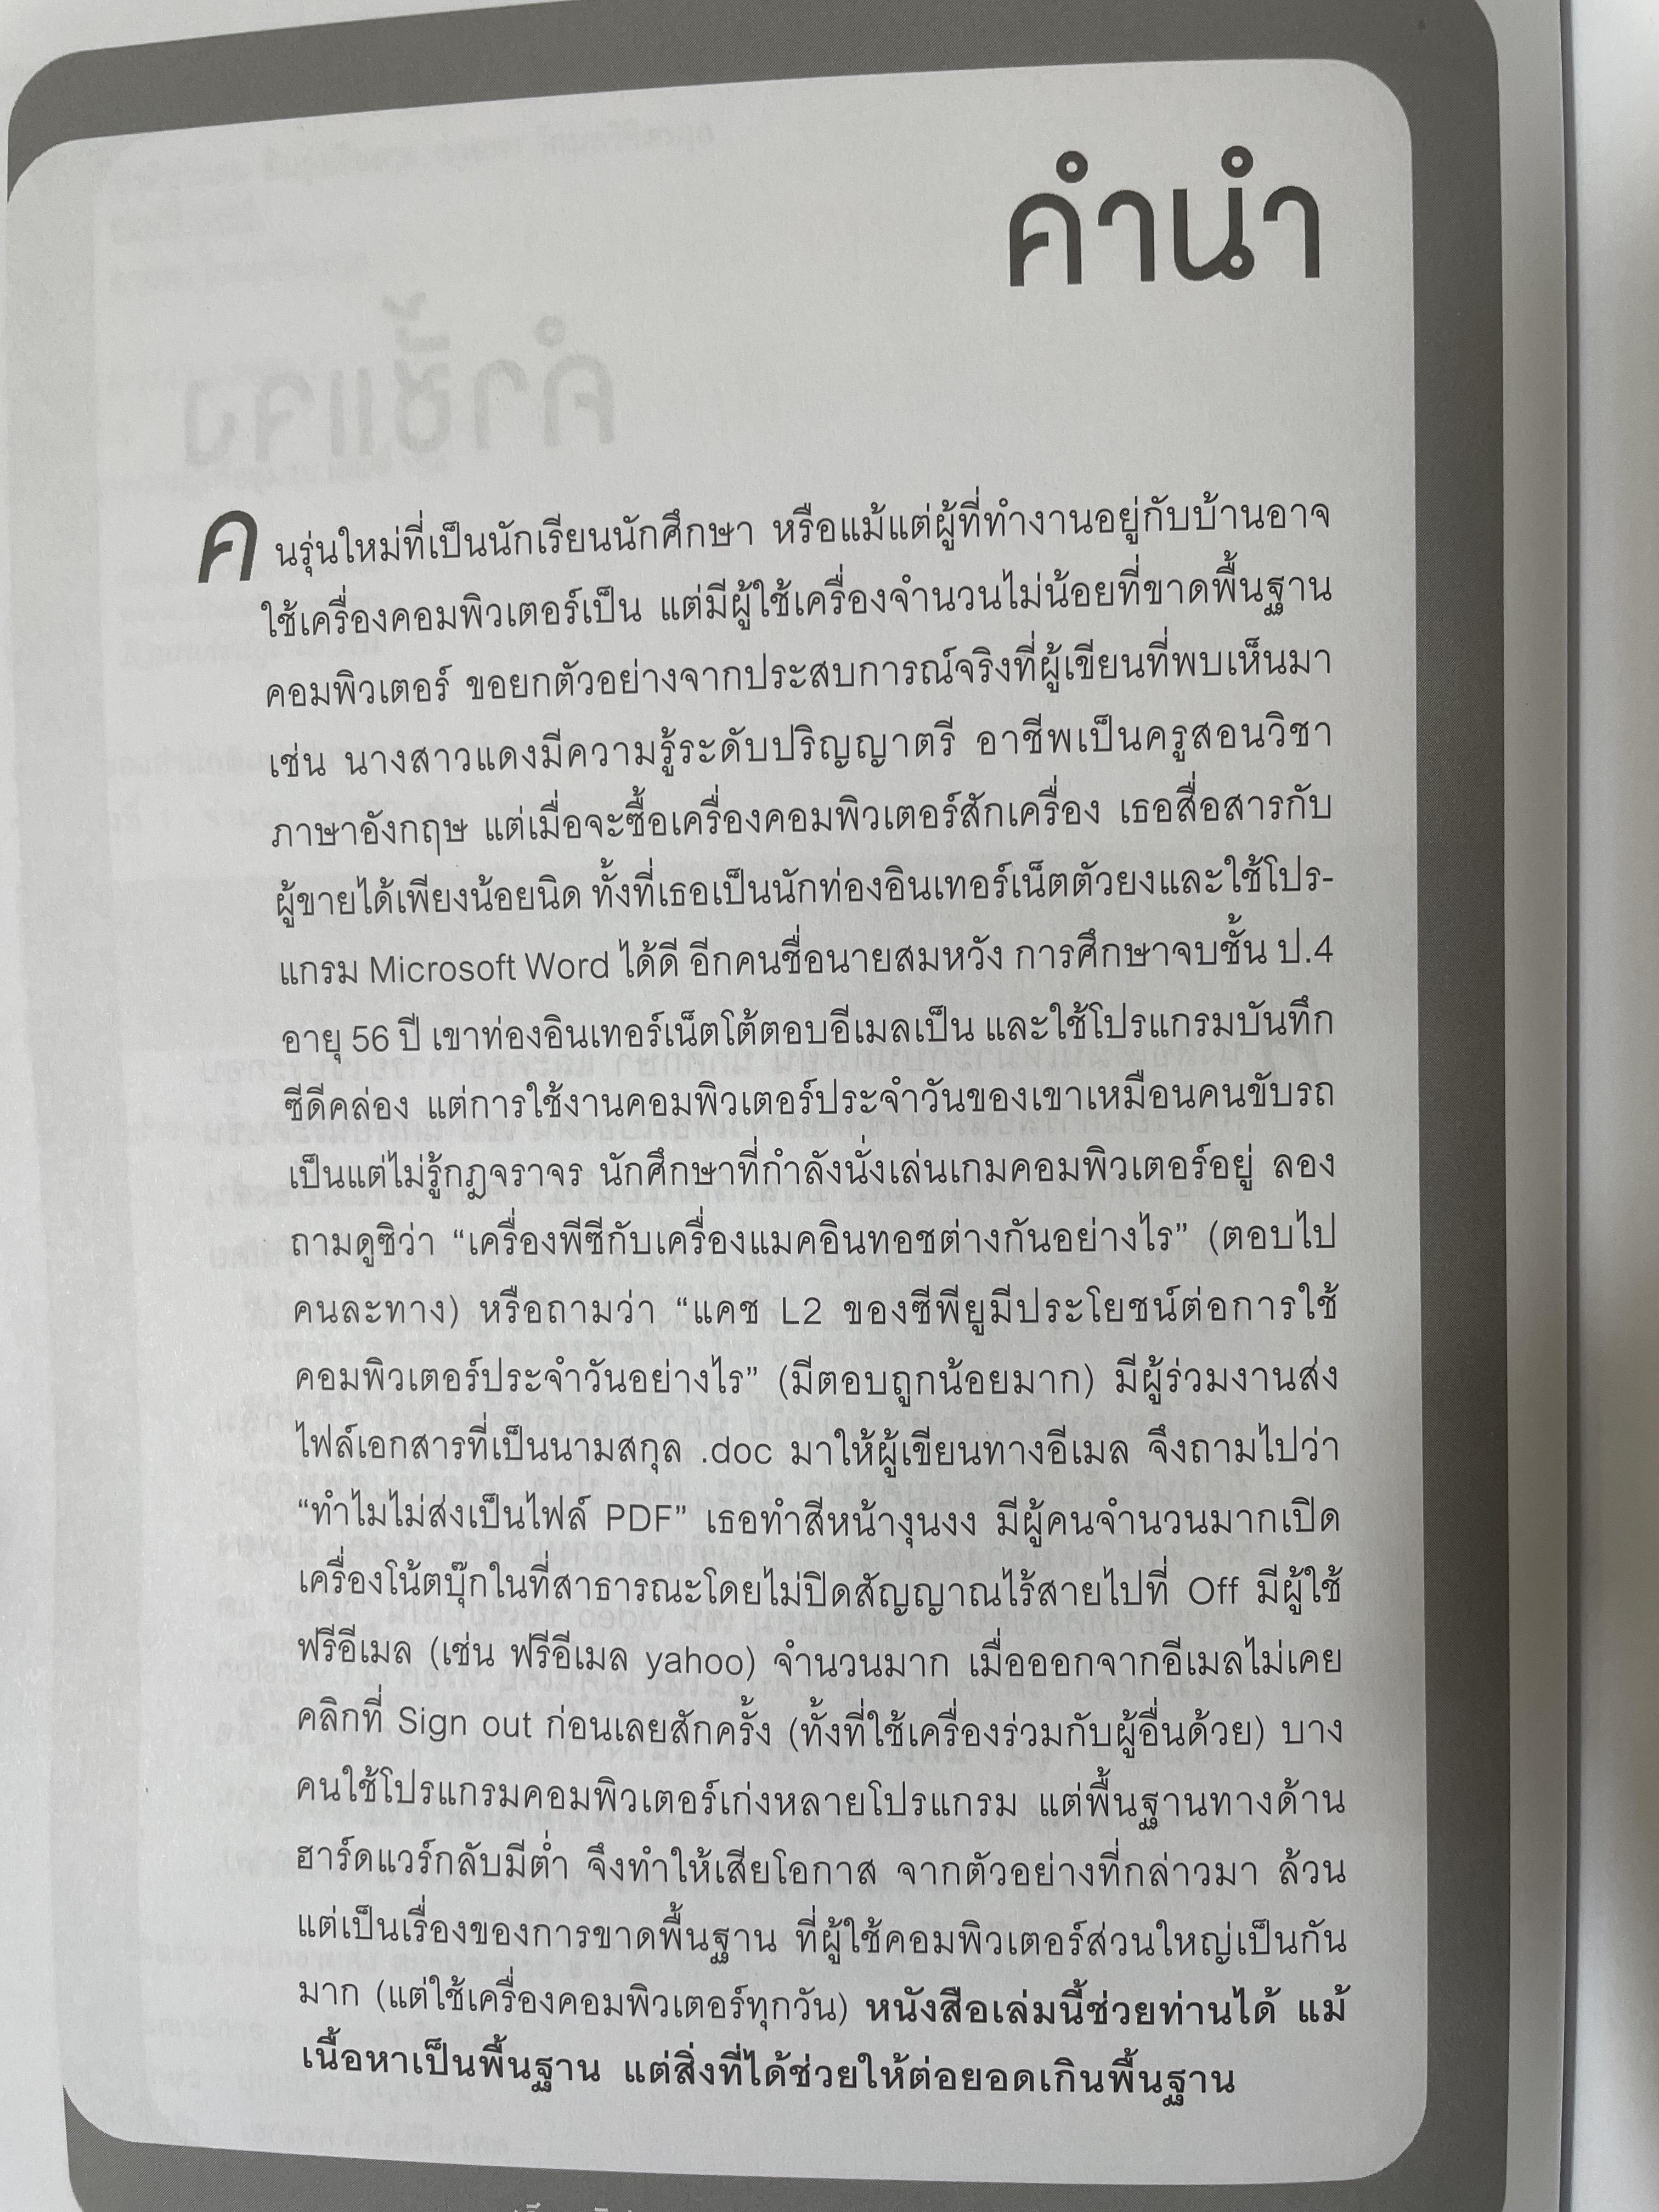 คำนำ
คนรุ่นใหม่ที่เป็นนักเรียนนักศึกษา หรือแม้แต่ผู้ที่ทำงานอยู่กับบ้านอาจ
ใช้เครื่องคอมพิวเตอร์เป็น แต่มีผู้ใช้เครื่องจำนวนไม่น้อยที่ขาดพื้นฐาน
คอมพิวเตอร์ ขอยกตัวอย่างจากประสบการณ์จริงที่ผู้เขียนที่พบเห็นมา
เช่น นางสาวแดงมีความรู้ระดับปริญญาตรี อาชีพเป็นครูสอนวิชา
ภาษาอังกฤษ แต่เมื่อจะซื้อเครื่องคอมพิวเตอร์สักเครื่อง เธอสื่อสารกับ
ผู้ขายได้เพียงน้อยนิด ทั้งที่เธอเป็นนักท่องอินเทอร์เน็ตตัวยงและใช้โปร-
แกรม Microsoft Word ได้ดี อีกคนชื่อนายสมหวัง การศึกษาจบชั้น ป.4
อายุ 56 ปี เขาท่องอินเทอร์เน็ตโต้ตอบอีเมลเป็น และใช้โปรแกรมบันทึก
ซีดีคล่อง แต่การใช้งานคอมพิวเตอร์ประจำวันของเขาเหมือนคนขับรถ
เป็นแต่ไม่รู้กฎจราจร นักศึกษาที่กำลังนั่งเล่นเกมคอมพิวเตอร์อยู่ ลอง
ถามดูซิว่า “เครื่องพีซีกับเครื่องแมคอินทอชต่างกันอย่างไร” (ตอบไป
คนละทาง) หรือถามว่า “แคช L2 ของซีพียูมีประโยชน์ต่อการใช้
คอมพิวเตอร์ประจำวันอย่างไร” (มีตอบถูกน้อยมาก) มีผู้ร่วมงานส่ง
ไฟล์เอกสารที่เป็นนามสกุล .doc มาให้ผู้เขียนทางอีเมล จึงถามไปว่า
“ทำไมไม่ส่งเป็นไฟล์ PDF” เธอทำสีหน้างุนงง มีผู้คนจำนวนมากเปิด
เครื่องโน้ตบุ๊กในที่สาธารณะโดยไม่ปิดสัญญาณไร้สายไปที่ Off มีผู้ใช้
ฟรีอีเมล (เช่น ฟรีอีเมล yahoo) จำนวนมาก เมื่อออกจากอีเมลไม่เคย
คลิกที่ Sign out ก่อนเลยสักครั้ง (ทั้งที่ใช้เครื่องร่วมกับผู้อื่นด้วย) บาง
คนใช้โปรแกรมคอมพิวเตอร์เก่งหลายโปรแกรม แต่พื้นฐานทางด้าน
ฮาร์ดแวร์กลับมีต่ำ จึงทำให้เสียโอกาส จากตัวอย่างที่กล่าวมา ล้วน
แต่เป็นเรื่องของการขาดพื้นฐาน ที่ผู้ใช้คอมพิวเตอร์ส่วนใหญ่เป็นกัน
มาก (แต่ใช้เครื่องคอมพิวเตอร์ทุกวัน) หนังสือเล่มนี้ช่วยท่านได้ แม้
เนื้อหาเป็นพื้นฐาน แต่สิ่งที่ได้ช่วยให้ต่อยอดเกินพื้นฐาน